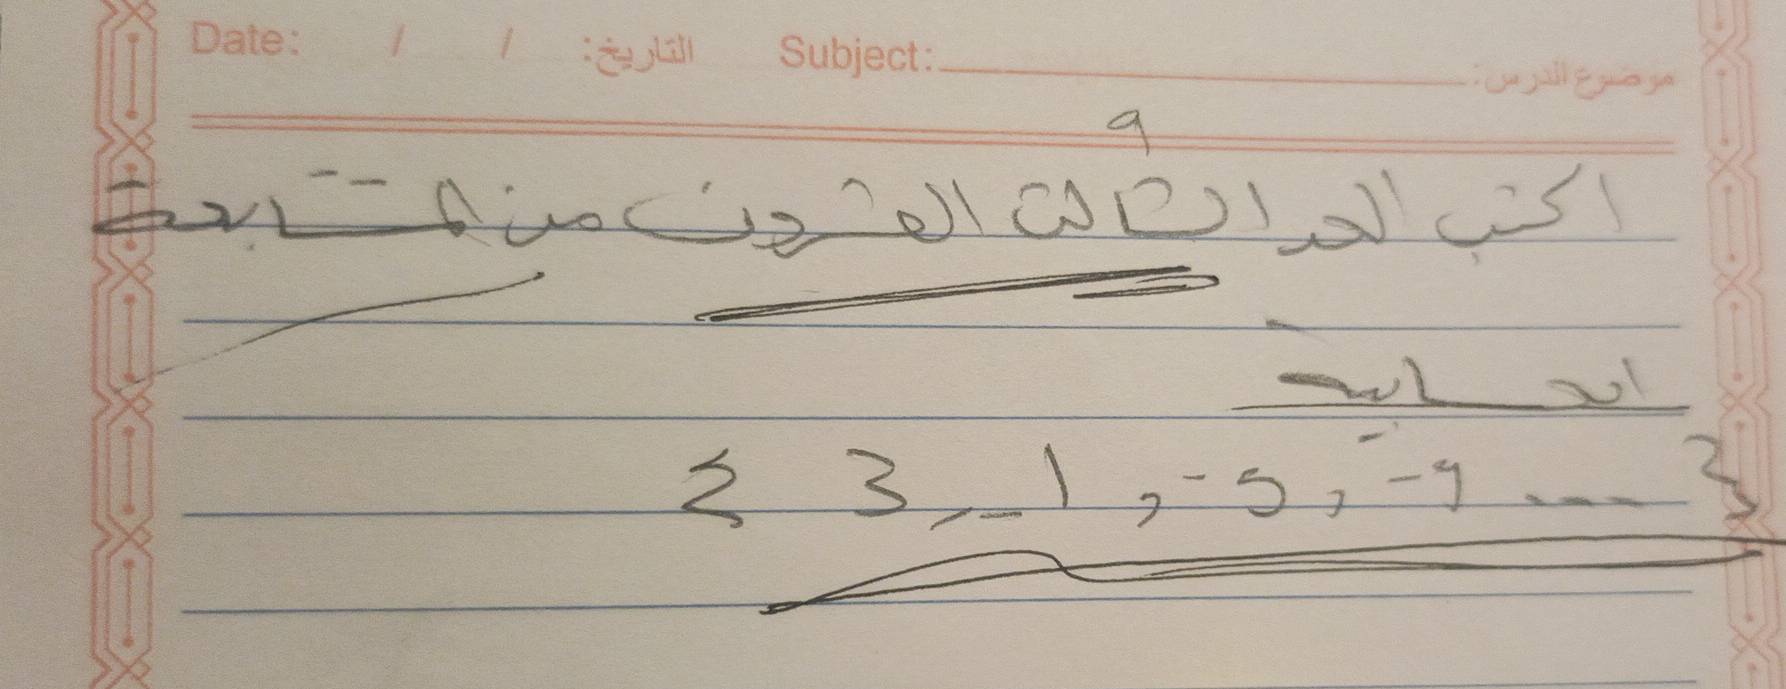 Date: / / التاريخ: Subject: موضوع الدرس:
و
اكتب الحد الثالث العشرون من المتتابعة
الحسابية
{ 3 , -1 , -5 , -9 ---- }